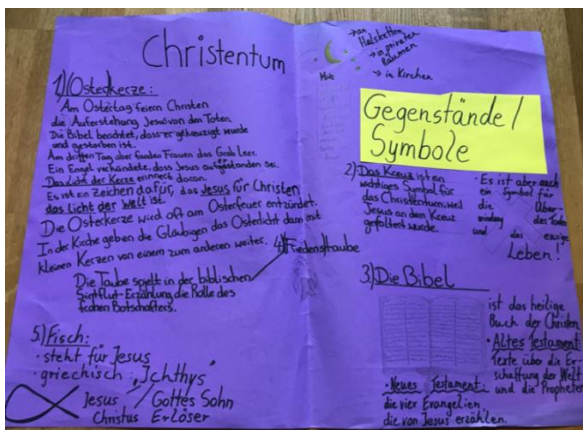 Christentum
1) Osterkerze:
Am Ostertag feiern Christen
die Auferstehung Jesu von den Toten.
Die Bibel berichtet, dass er gekreuzigt wurde
und gestorben ist.
Am dritten Tag aber fanden Frauen das Grab leer.
Ein Engel verkündete, dass Jesus auferstanden sei.
Das Licht der Kerze erinnert daran.
Es ist ein Zeichen dafür, das Jesus für Christen
das Licht der Welt ist.
Die Osterkerze wird oft am Osterfeuer entzündet.
In der Kirche geben die Gläubigen das Osterlicht dann mit
kleinen Kerzen von einem zum anderen weiter.
4) Friedenstaube
Die Taube spielt in der biblischen
Sintflut-Erzählung die Rolle des
frohen Botschafters.
5.) Fisch:
· steht für Jesus
· griechisch: "Ichthys"
Jesus / Gottes Sohn
Christus Erlöser
→ an
Halsketten
→ in privaten
Räumen
→ in Kirchen
Gegenstände/
Symbole
2) Das Kreuz ist ein
wichtiges Symbol für
das Christentum, weil
Jesus an dem Kreuz
gefoltert wurde.
· Es ist aber auch
ein Symbol für
die Über-
windung des Todes
und das ewige
Leben!
3.) Die Bibel
ist das heilige
Buch der Christen.
· Altes Testament:
Texte über die Er-
schaffung der Welt
und die Propheten
· Neues Testament:
die vier Evangelien
die von Jesus erzählen.